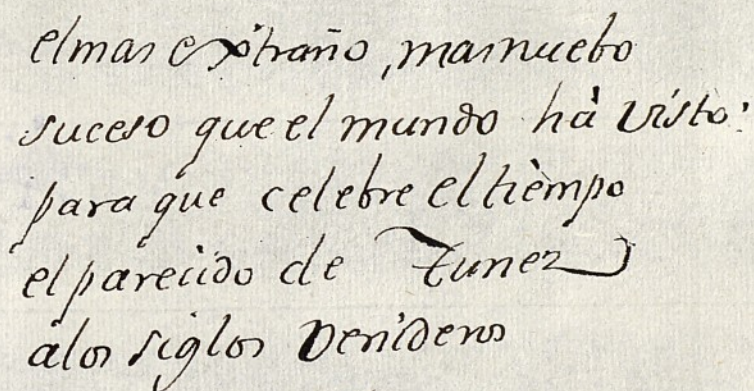 elmas extraño, masnuebo
suceso que el mundo há visto:
para que celebre el tièmpo
el parecido de Tunez
alos siglos Venideros